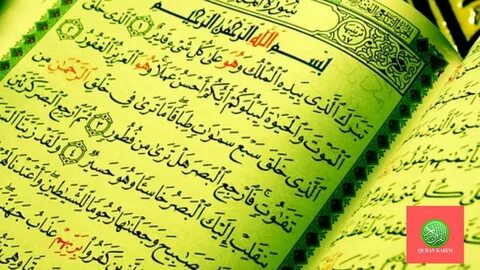 بِسْمِ اللَّهِ الرَّحْمَٰنِ الرَّحِيمِ
تَبَٰرَكَ الَّذِي بِيَدِهِ الْمُلْكُ وَهُوَ عَلَىٰ كُلِّ شَيْءٍ قَدِيرٌ ١ الَّذِي خَلَقَ
الْمَوْتَ وَالْحَيَوٰةَ لِيَبْلُوَكُمْ أَيُّكُمْ أَحْسَنُ عَمَلًا وَهُوَ الْعَزِيزُ الْغَفُورُ ٢
الَّذِي خَلَقَ سَبْعَ سَمَٰوَٰتٍ طِبَاقًا مَّا تَرَىٰ فِي خَلْقِ الرَّحْمَٰنِ مِن
تَفَٰوُتٍ فَارْجِعِ الْبَصَرَ هَلْ تَرَىٰ مِن فُطُورٍ ٣ ثُمَّ ارْجِعِ الْبَصَرَ كَرَّتَيْنِ
يَنقَلِبْ إِلَيْكَ الْبَصَرُ خَاسِئًا وَهُوَ حَسِيرٌ ٤ وَلَقَدْ زَيَّنَّا
بِمَصَٰبِيحَ وَجَعَلْنَٰهَا رُجُومًا لِّلشَّيَٰطِينِ وَأَعْتَدْنَا
كَفَرُوا بِرَبِّهِمْ عَذَابُ جَهَنَّمَ
QURAN KARIM